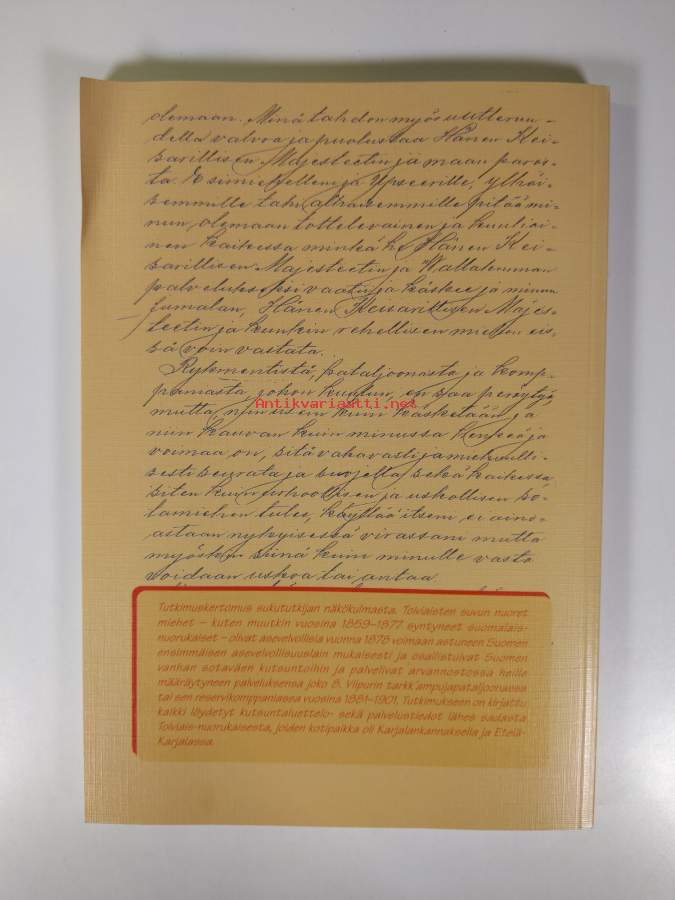 olemaan. Minä tahdon myös uutteruu-
della valvoa ja puolustaa Hänen Kei-
sarillisen Majesteetin ja maan paras-
ta. Esimiehelleni ja Upseerille, ylhäi-
semmille tahi alhaisemmille pitää mi-
nun, olemaan tottelevainen ja kuuliai-
nen kaikessa minkä he Hänen Kei-
sarillisen Majesteetin ja Wallatunnan
palvelukseksi vaativa ja käskee ja minun
Jumalan, Hänen Keisarillisen Majes-
teetin ja kunkin rehellisen miehen eis-
sä voin vastata.
Rykmentistä, pataljoonasta ja komp-
paniasta, johon kuulun, en saa peräytyä,
mutta niin usein kuin käsketään, ja
niin kauvan kuin minussa henkeä ja
voimaa on, sitä vahavasti ja miehuulli-
sesti seurata ja suojella sekä kaikessa
siten kuin urhoollisen ja uskollisen so-
tamiehen tulee, käyttää itseni ei aino-
astaan nykyisessä virassani mutta
myöskin siinä kuin minulle vasta
voidaan uskoa tai antaa.
Antikvariaatti.net
Tutkimuskertomus sukututkijan näkökulmasta. Toiviaisten suvun nuoret
miehet – kuten muutkin vuosina 1859–1877 syntyneet suomalais-
nuorukaiset – olivat asevelvollisia vuonna 1878 voimaan astuneen Suomen
ensimmäisen asevelvollisuuslain mukaisesti ja osallistuivat Suomen
vanhan sotaväen kutsuntoihin ja palvelivat arvannostossa heille
määräytyneen palveluksensa joko 8. Viipurin tarkk'ampujapataljoonassa
tai sen reservikomppaniassa vuosina 1881–1901. Tutkimukseen on kirjattu
kaikki löydetyt kutsuntaluettelo- sekä palvelustiedot lähes sadasta
Toiviais-nuorukaisesta, joiden kotipaikka oli Karjalankannaksella ja Etelä-
Karjalassa.